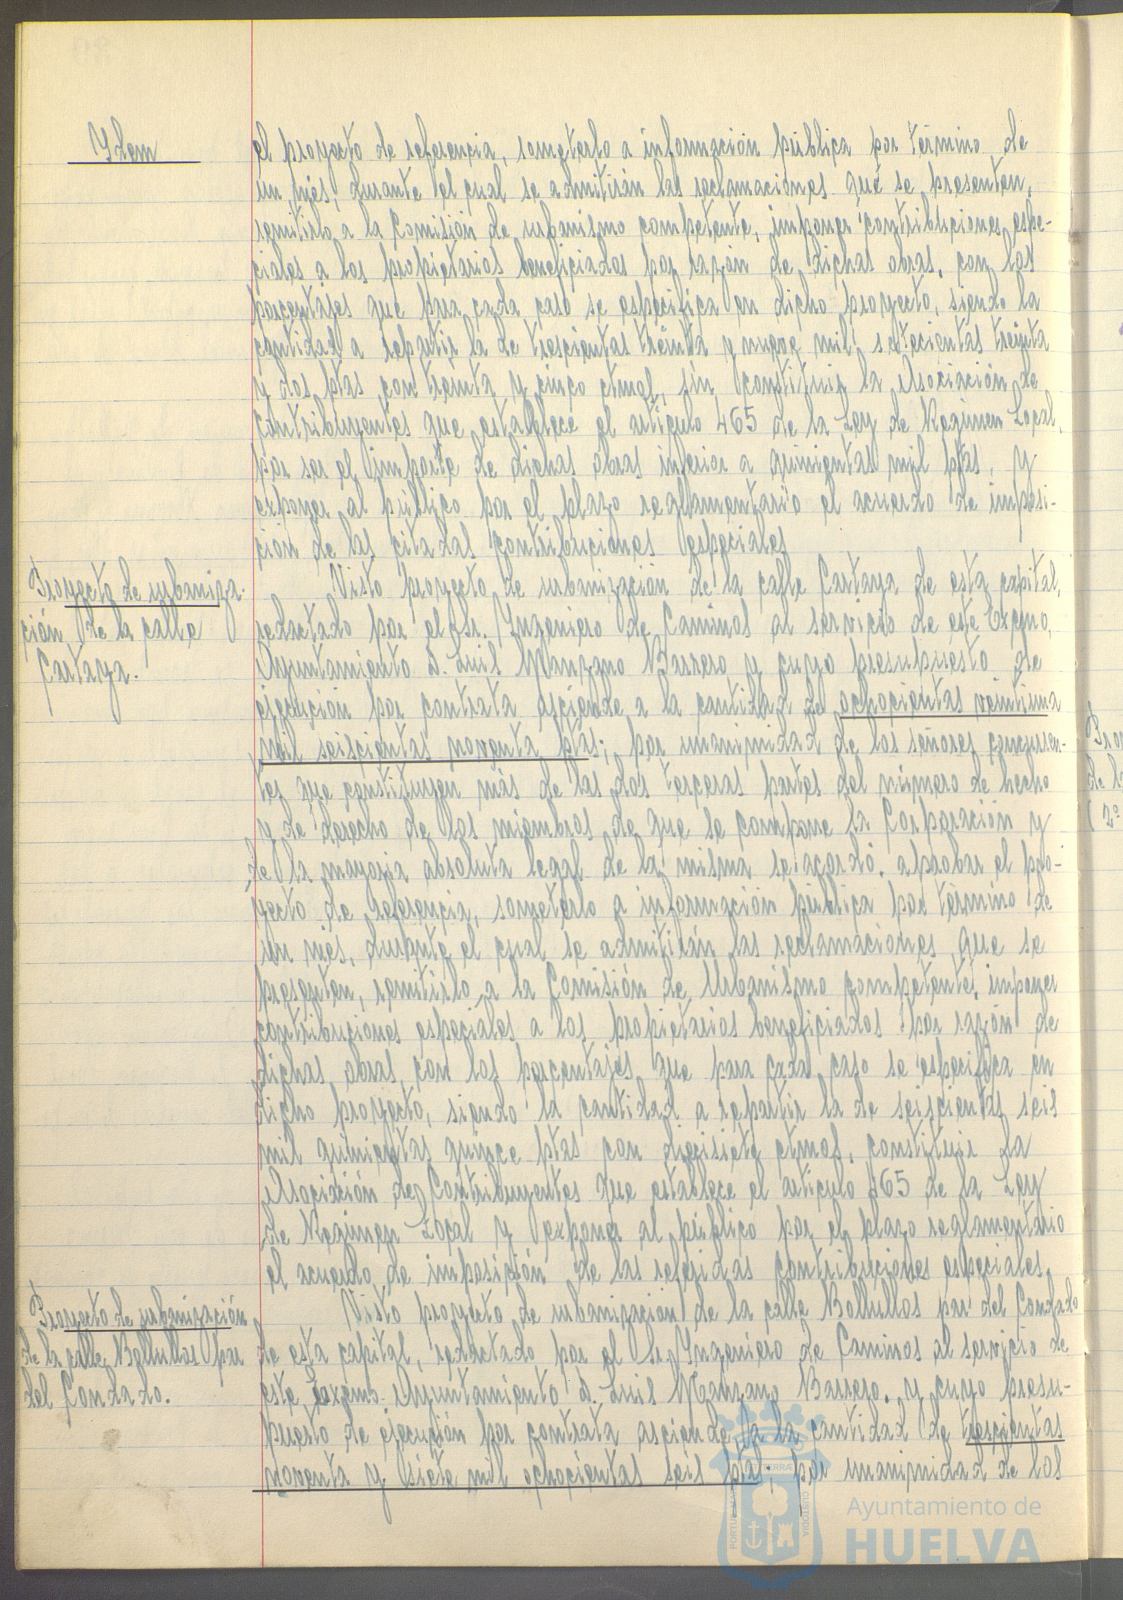 Ydem
el proyecto de referencia, someterlo a información pública por término de
un mes, durante el cual se admitirán las reclamaciones que se presenten,
remitirlo a la Comisión de urbanismo competente, imponer contribuciones espe-
ciales a los propietarios beneficiados por razón de dichas obras, con los
porcentajes que para cada caso se especifica en dicho proyecto, siendo la
cantidad a repartir la de trescientas treinta y nueve mil setecientas treinta
y dos ptas con treinta y cinco ctmos, sin constituir la Asociación de
Contribuyentes que establece el artículo 465 de la Ley de Regimen Local,
por ser el importe de dichas obras inferior a quinientas mil ptas, y
exponer al público por el plazo reglamentario el acuerdo de imposi-
ción de las citadas contribuciones especiales
Proyecto de urbaniza-
ción de la calle
Cartaya.
Visto proyecto de urbanización de la calle Cartaya de esta capital,
redactado por el Sr. Ingeniero de Caminos al servicio de este Excmo.
Ayuntamiento D. Luis Manzano Barrero y cuyo presupuesto de
ejecución por contrata asciende a la cantidad de ochocientas veintiuna
mil seiscientas noventa ptas; por unanimidad de los señores concurren-
tes que constituyen más de las dos terceras partes del número de hecho
y de derecho de los miembros de que se compone la Corporación y
de la mayoria absoluta legal de la misma se acordó: aprobar el pro-
yecto de referencia, someterlo a información pública por término de
un mes, durante el cual se admitirán las reclamaciones que se
presenten, remitirlo a la Comisión de Urbanismo competente, imponer
contribuciones especiales a los propietarios beneficiados por razón de
dichas obras, con los porcentajes que para cada caso se especifica en
dicho proyecto, siendo la cantidad a repartir la de seiscientas seis
mil quinientas quince ptas con diecisiete ctmos, constituir la
Asociación de Contribuyentes que establece el artículo 465 de la Ley
de Regimen Local y exponer al público por el plazo reglamentario
el acuerdo de imposición de las referidas contribuciones especiales.
Proyecto de urbanización
de la calle Bollullos par
del Condado.
Visto proyecto de urbanización de la calle Bollullos par del Condado
de esta capital, redactado por el Sr. Ingeniero de Caminos al servicio de
este Excmo. Ayuntamiento D. Luis Manzano Barrero, y cuyo presu-
puesto de ejecución por contrata asciende a la cantidad de trescientas
noventa y siete mil ochocientas seis ptas. por unanimidad de los
Ayuntamiento de
HUELVA